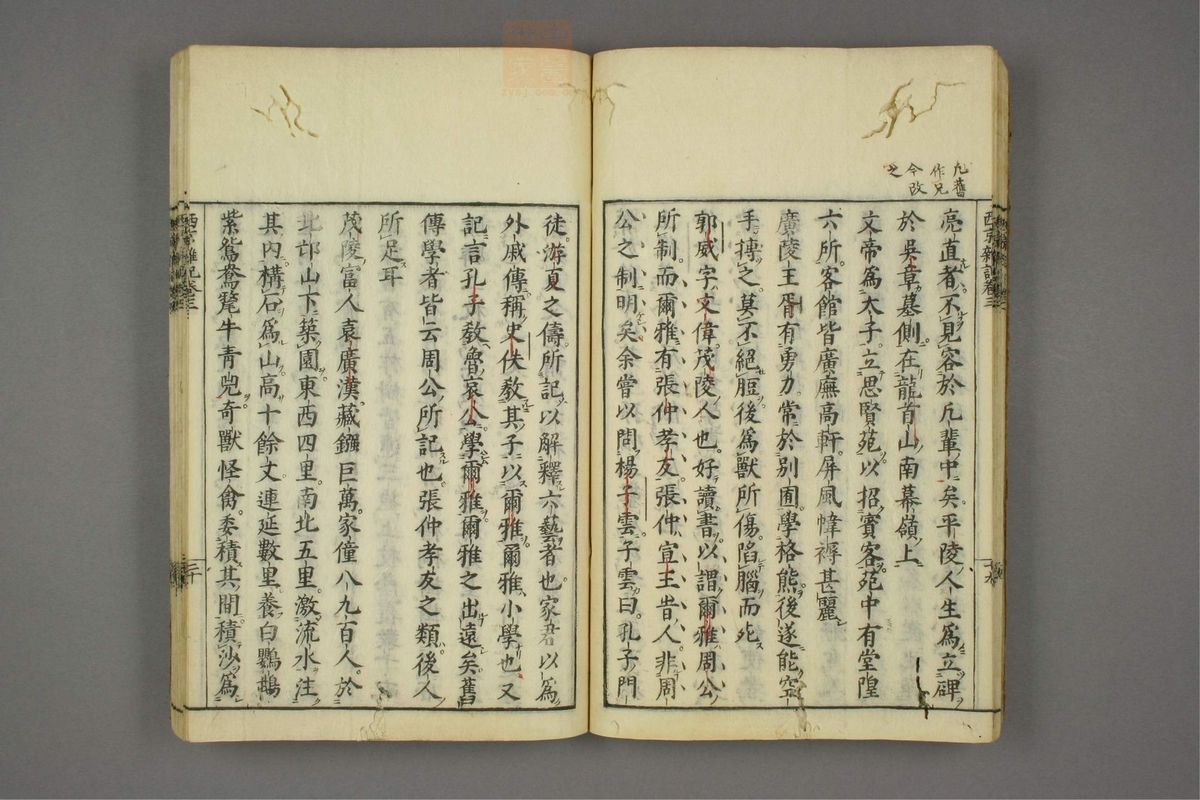 凡舊
作兄
今改
之
亮直者不見容於凡輩中矣平陵人生爲立碑
於吳章墓側在龍首山南幕嶺上
文帝爲太子立思賢苑以招賓客苑中有堂隍
六所客館皆廣廡高軒屏風幃褥甚麗
廣陵王胥有勇力常於别囿學格熊後遂能空
手搏之莫不絕脰後爲獸所傷陷腦而死
郭威字文偉茂陵人也好讀書以謂爾雅周公
所制而爾雅有張仲孝友張仲宣王昔人非周
公之制明矣余嘗以問楊子雲子雲曰孔子門
徒游夏之儔所記以解釋六藝者也家君以爲
外戚傳稱史佚教其子以爾雅爾雅小學也又
記言孔子教魯哀公學爾雅爾雅之出遠矣舊
傳學者皆云周公所記也張仲孝友之類後人
所足耳
茂陵富人袁廣漢藏鏹巨萬家僮八九百人於
北邙山下築園東西四里南北五里激流水注
其内構石爲山高十餘丈連延數里養白鸚鵡
紫鴛鴦氂牛青兕奇獸怪禽委積其間積沙爲